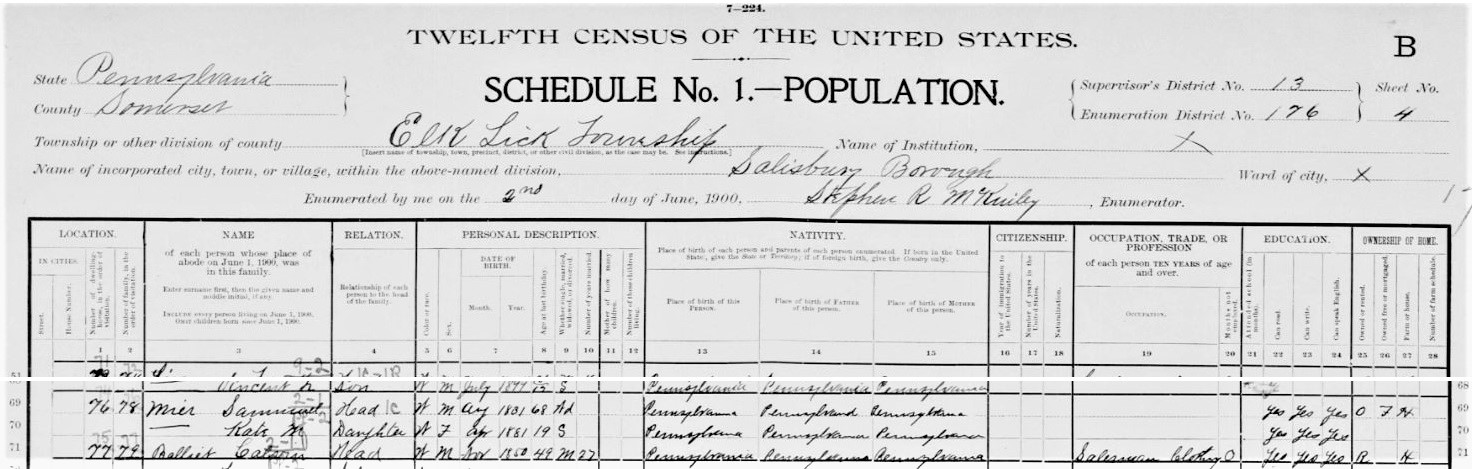 7-224.
TWELFTH CENSUS OF THE UNITED STATES.
B
State Pennsylvania
County Somerset
SCHEDULE No. 1.—POPULATION.
Supervisor's District No. 13
Sheet No.
Enumeration District No. 176
4
Township or other division of county Elk Lick Township
[Insert name of township, town, precinct, district, or other civil division, as the case may be. See instructions.]
Name of Institution, X
Name of incorporated city, town, or village, within the above-named division, Salisbury Borough
Ward of city, X
Enumerated by me on the 2nd day of June, 1900, Stephen R McKinley, Enumerator.
LOCATION.
IN CITIES.
Street.
House Number.
Number of dwelling-house, in the order of visitation.
Number of family, in the order of visitation.
NAME
of each person whose place of abode on June 1, 1900, was in this family.
Enter surname first, then the given name and middle initial, if any.
INCLUDE every person living on June 1, 1900.
OMIT children born since June 1, 1900.
RELATION.
Relationship of each person to the head of the family.
PERSONAL DESCRIPTION.
Color or race.
Sex.
DATE OF BIRTH.
Month.
Year.
Age at last birthday.
Whether single, married, widowed, or divorced.
Number of years married.
Mother of how many children.
Number of these children living.
NATIVITY.
Place of birth of each person and parents of each person enumerated. If born in the United States, give the State or Territory; if of foreign birth, give the Country only.
Place of birth of this PERSON.
Place of birth of FATHER of this person.
Place of birth of MOTHER of this person.
CITIZENSHIP.
Year of immigration to the United States.
Number of years in the United States.
Naturalization.
OCCUPATION, TRADE, OR PROFESSION
of each person TEN YEARS of age and over.
OCCUPATION.
Months not employed.
EDUCATION.
Attended school (in months).
Can read.
Can write.
Can speak English.
OWNERSHIP OF HOME.
Owned or rented.
Owned free or mortgaged.
Farm or house.
Number of farm schedule.
1 2 3 4 5 6 7 8 9 10 11 12 13 14 15 16 17 18 19 20 21 22 23 24 25 26 27 28
51
Son W M July S Pennsylvania Pennsylvania Pennsylvania 68
69 76 78 Mier Head W M Aug 1831 68 Wd Pennsylvania Pennsylvania Pennsylvania Yes Yes Yes O F H 69
70 Kate M Daughter W F Apr 1881 19 S Pennsylvania Pennsylvania Pennsylvania Yes Yes Yes 70
71 77 79 Balliet Head W M Nov 1850 49 M 27 Pennsylvania Pennsylvania Pennsylvania Salesman Clothing 0 Yes Yes Yes R H 71